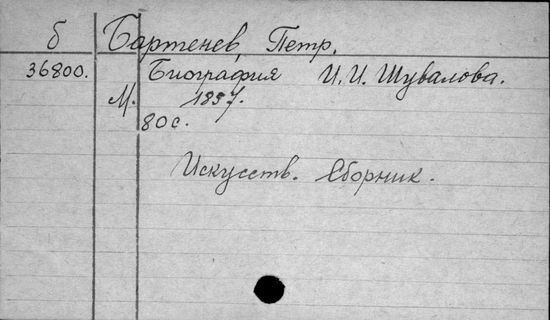 б Бартенев, Петр.
36800. Биография И.И. Шувалова.
М. 1857.
80 с.
Искусств. Сборник.